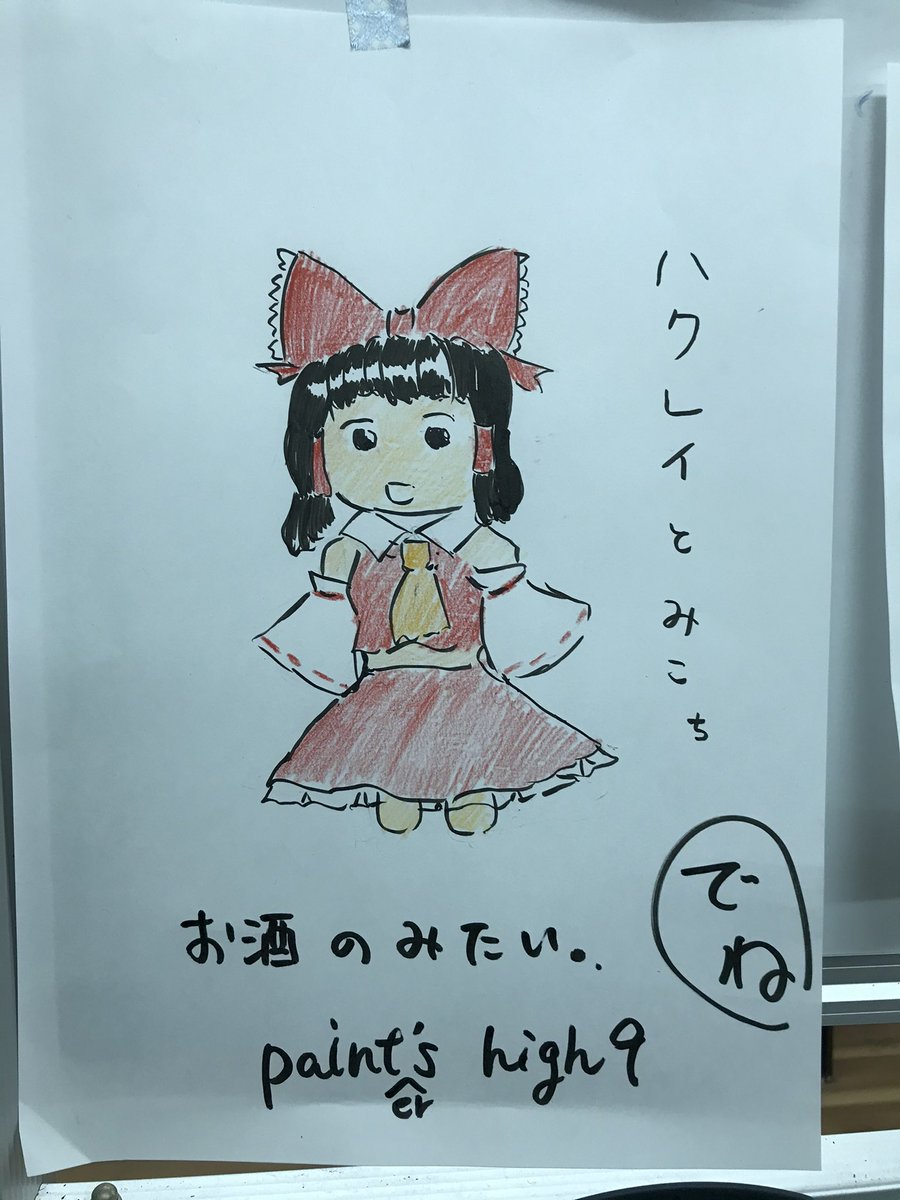 ハクレイとみこち
お酒のみたい。
でね
painter's high9